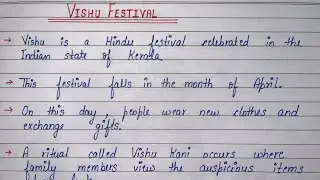 VISHU FESTIVAL
→ Vishu is a Hindu festival celebrated in the
Indian state of Kerala.
→ This festival falls in the month of April.
→ On this day, people wear new clothes and
exchange gifts.
→ A ritual called Vishu Kani occurs where
family members view the auspicious items